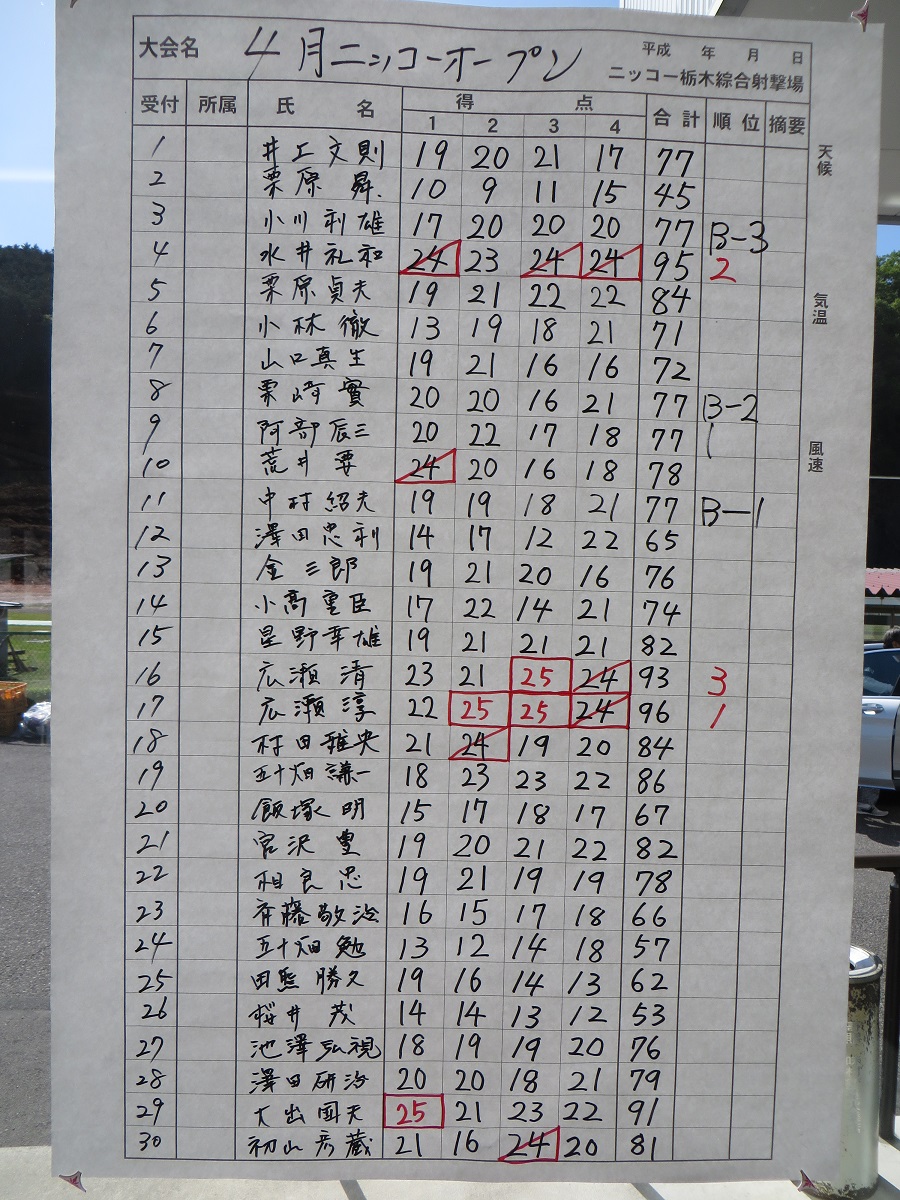 大会名 4月ニッコーオープン 平成 年 月 日
ニッコー栃木綜合射撃場
受付 所属 氏 名 得 点 合計 順位 摘要
1 2 3 4
1 井上文則 19 20 21 17 77
2 栗原 昇 10 9 11 15 45
3 小川利雄 17 20 20 20 77 B-3
4 水井礼和 24 23 24 24 95 2
5 栗原貞夫 19 21 22 22 84
6 小林徹 13 19 18 21 71
7 山口真生 19 21 16 16 72
8 栗崎實 20 20 16 21 77 B-2
9 阿部辰三 20 22 17 18 77
10 荒井要 24 20 16 18 78
11 中村紹夫 19 19 18 21 77 B-1
12 澤田忠利 14 17 12 22 65
13 金三郎 19 21 20 16 76
14 小高重臣 17 22 14 21 74
15 星野幸雄 19 21 21 21 82
16 広瀬清 23 21 25 24 93 3
17 広瀬淳 22 25 25 24 96 1
18 村田雅央 21 24 19 20 84
19 五十畑謙一 18 23 23 22 86
20 飯塚明 15 17 18 17 67
21 宮沢豊 19 20 21 22 82
22 相良忠 19 21 19 19 78
23 斉藤敬治 16 15 17 18 66
24 五十畑勉 13 12 14 18 57
25 田熊勝久 19 16 14 13 62
26 桜井茂 14 14 13 12 53
27 池澤弘視 18 19 19 20 76
28 澤田研治 20 20 18 21 79
29 大出国夫 25 21 23 22 91
30 初山彦蔵 21 16 24 20 81
天候
気温
風速